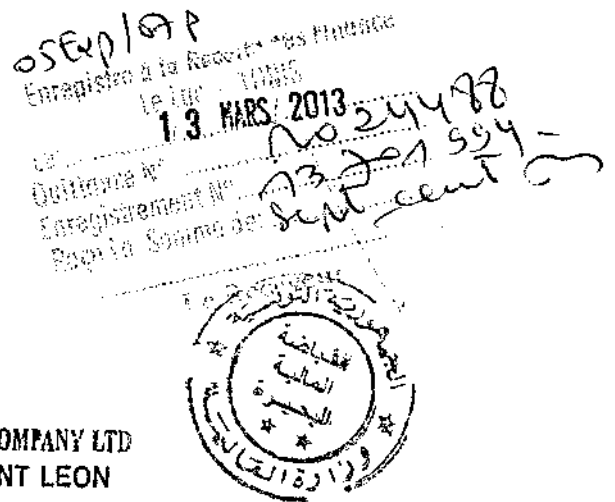 05 Exp/
Enregistré à la Recette des Finance
Le Lac TUNIS
13 MARS 2013
Le
Quittance N° 24488
Enregistrement N° 13 701 994
Reçu la Somme de: Sept cent
Le Receveur
الجمهورية التونسية
قباضة
المالية
البحيرة
وزارة المالية
OMPANY LTD
NT LEON